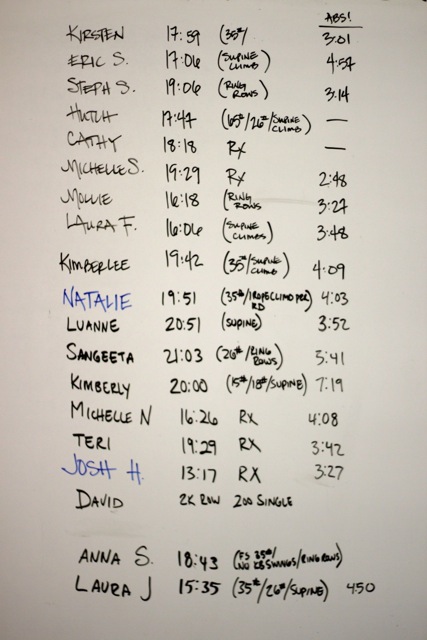 ABS!
KIRSTEN 17:59 (35#/ 3:01
ERIC S. 17:06 (SUPINE CLIMB) 4:57
STEPH S. 19:06 (RING ROWS) 3:14
HUTCH 17:47 (65#/26#/SUPINE CLIMB) —
CATHY 18:18 RX —
MICHELLE S. 19:29 RX 2:48
MOLLIE 16:18 (RING ROWS 3:27
LAURA F. 16:06 (SUPINE CLIMBS) 3:48
KIMBERLEE 19:42 (35#/SUPINE CLIMB) 4:09
NATALIE 19:51 (35#/1 ROPE CLIMB PER RD 4:03
LUANNE 20:51 (SUPINE) 3:52
SANGEETA 21:03 (26#/RING ROWS) 3:41
KIMBERLY 20:00 (15#/18#/SUPINE) 7:19
MICHELLE N 16:26 RX 4:08
TERI 19:29 RX 3:42
JOSH H. 13:17 RX 3:27
DAVID 2K ROW 200 SINGLE
ANNA S. 18:43 (FS 35#/ NO KB SWINGS/RING ROWS)
LAURA J 15:35 (35#/26#/SUPINE) 4:50